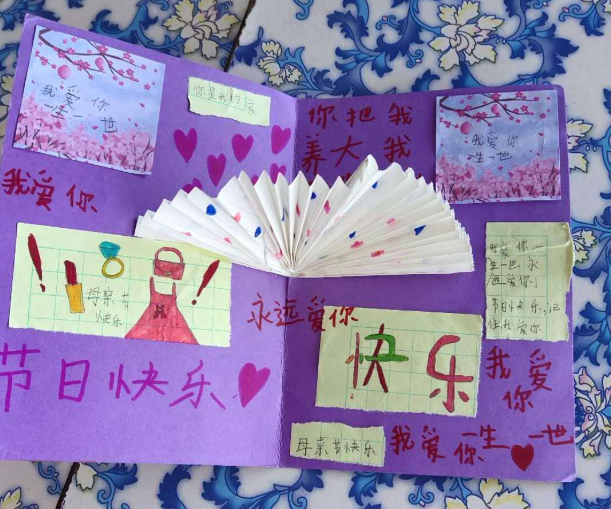 我爱你
一生一世
你是我的
我爱你
母亲节
快乐
节日快乐
你把我
养大我
我爱你
一生一世
我爱你一
生一世永
远爱你
节日快乐
我爱你
永远爱你
快乐
我爱
你
母亲节快乐
我爱你一生一世